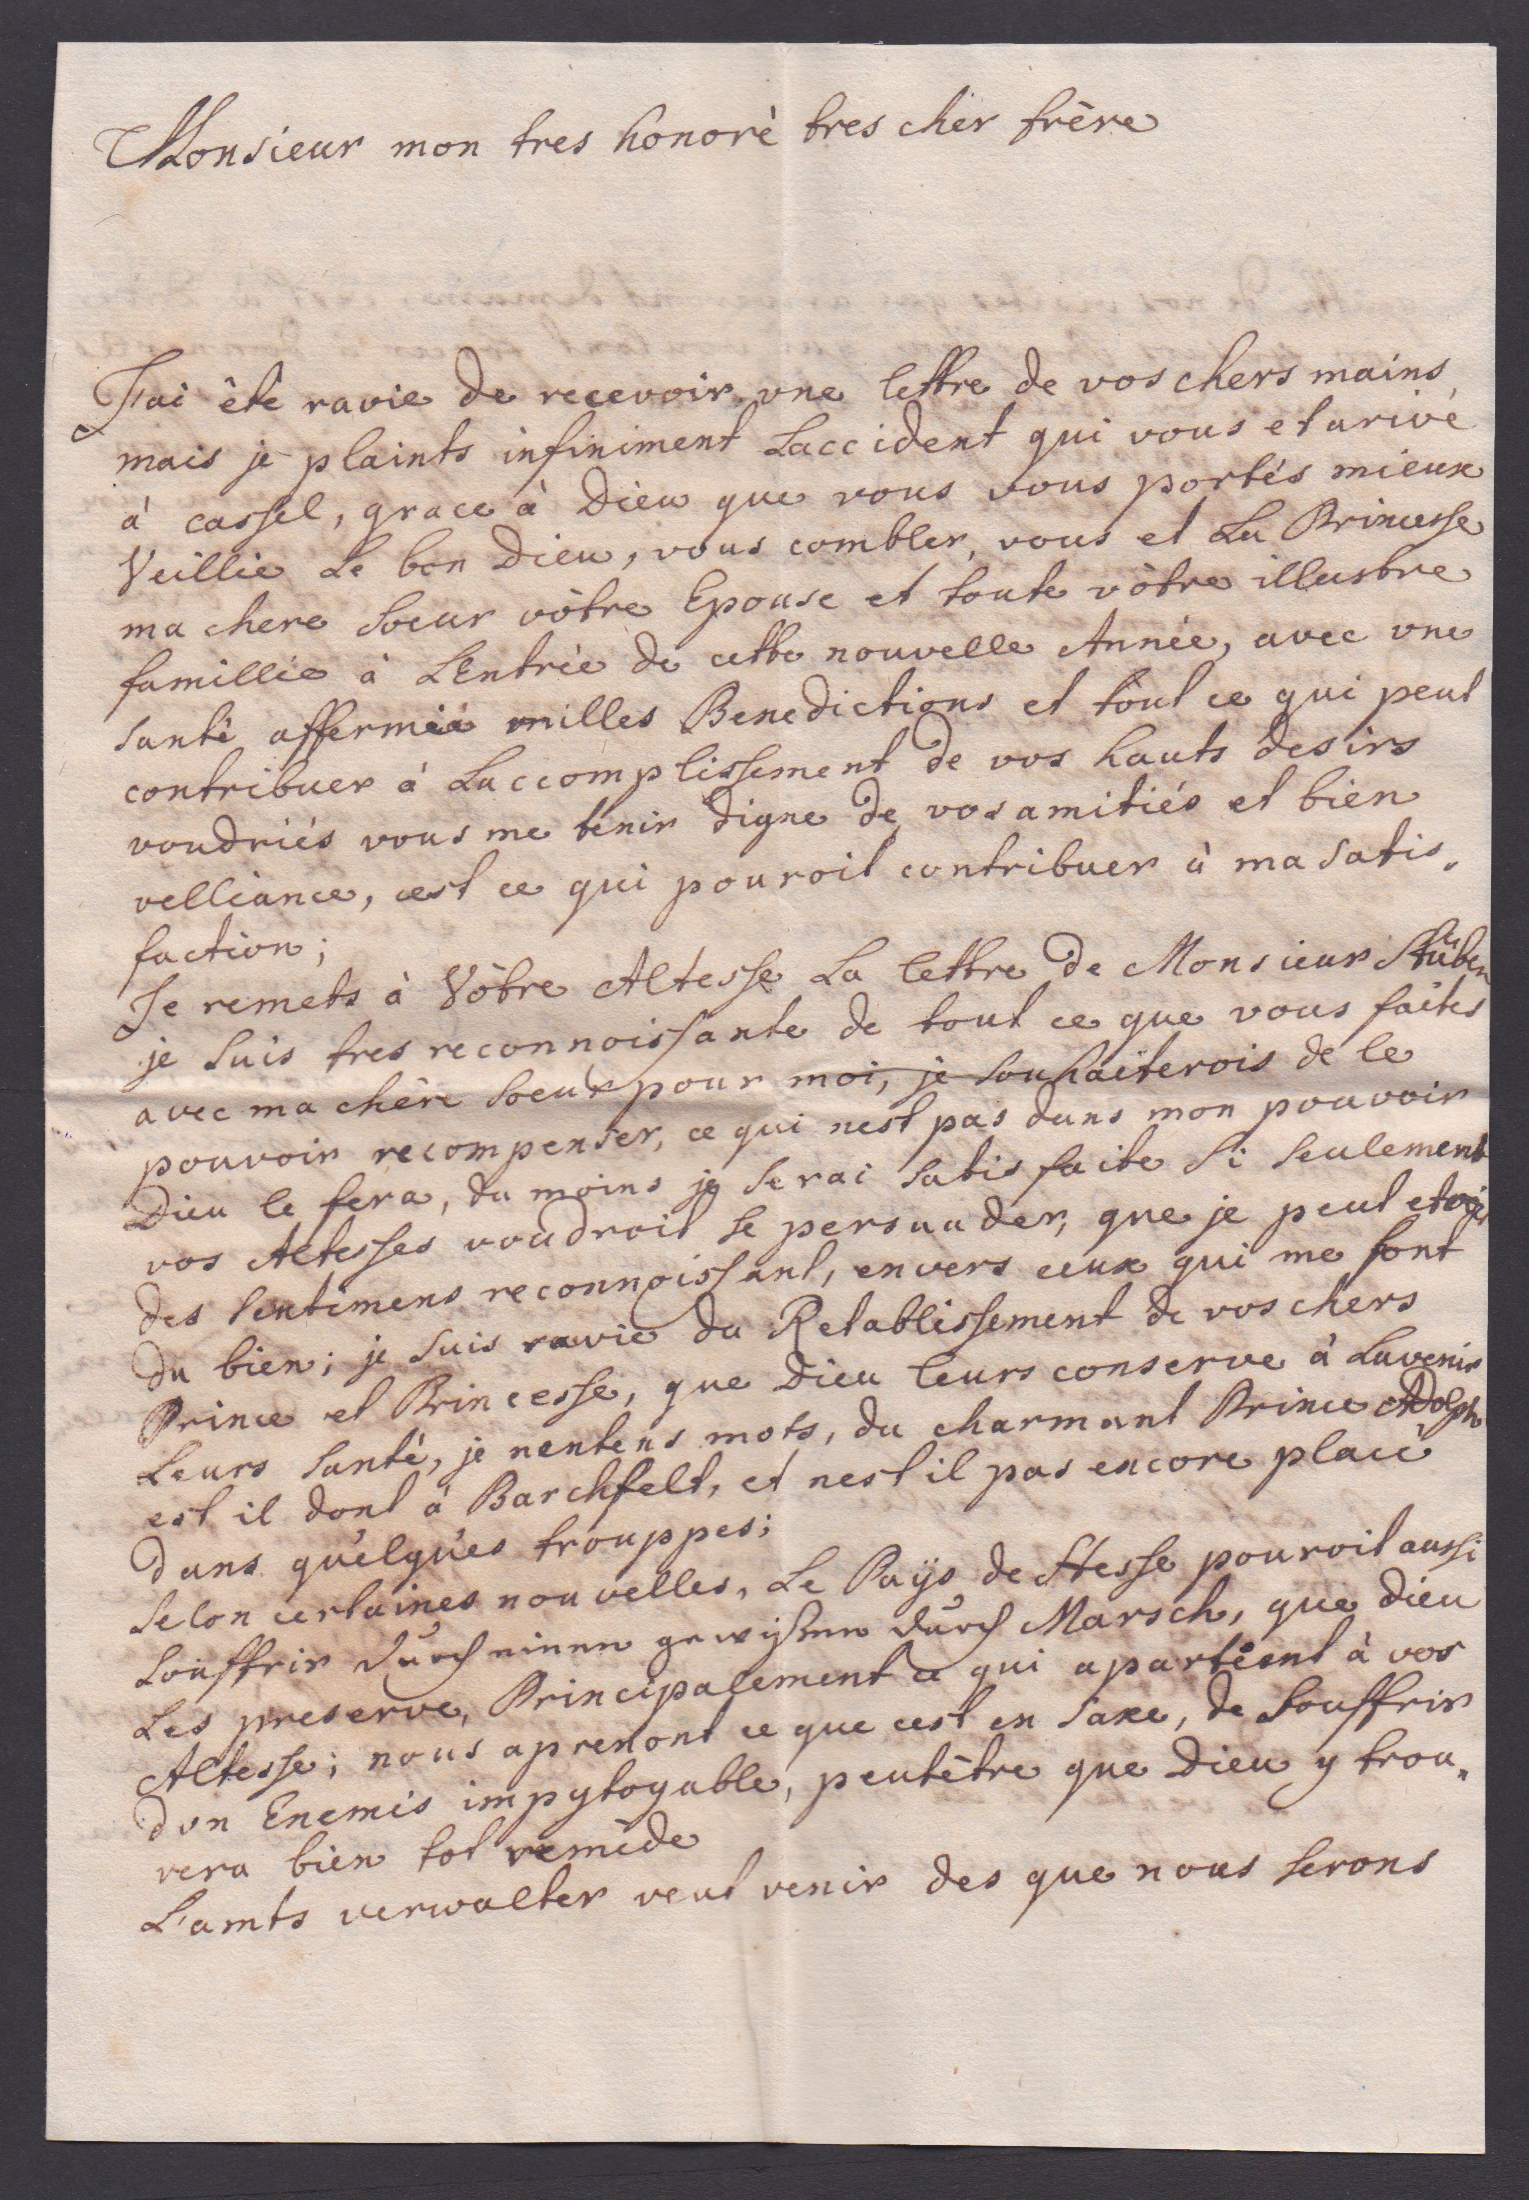 Monsieur mon tres honorè tres cher frère
J'ai êtè ravie de recevoir une lettre de vos chers mains
mais je plaints infiniment Laccident qui vous et arivé
à cassel, grace à Dieu que vous vous portés mieux
Veillie Le bon Dieu, vous combler, vous et La Princesse
ma chere Soeur vòtre Epouse et toute vòtre illustre
famillie à LEntrèe de cette nouvelle Annèe, avec une
Santè affermie milles Benedictions et tout ce qui peut
contribuer à Laccomplissement de vos hauts desirs
voudriés vous me tenir digne de vos amitiés et bien
velliance, cest ce qui pouroit contribuer à ma Satis„
faction;
Je remets à Vòtre Altesse La lettre de Monsieur Stüben
je Suis tres reconnoissante de tout ce que vous faites
avec ma chère Soeur pour moi, je Souhaiterois de le
pouvoir recompenser, ce qui nest pas dans mon pouvoir
Dieu le fera, du moins je Serai Satisfaite Si Seulement
vos Altesses voudroit Se persuader, que je peut
des Sentimens reconnoissant, envers ceux qui me font
du bien; je Suis ravie du Retablissement de vos chers
Prince et Princesse, que Dieu leurs conserve à Lavenir
Leurs Santé, je nentens mots, du charmant Prince Adolph
est il dont à Barchfelt, et nest il pas encore placè
dans quèlquès trouppes;
Selon certaines nouvelles, Le Paÿs de Hesse pouroit aussi
Souffrir durch einen gewißen durch Marsch, que Dieu
Les preserve, Principalement ce qui apartient à vos
Altesse; nous aprenont ce que cest en Saxe, de Souffrir
dun Enemis impytoyable, peutêtre que Dieu y trou„
vera bien tot remède
L'amts verwalter veut venir des que nous Serons